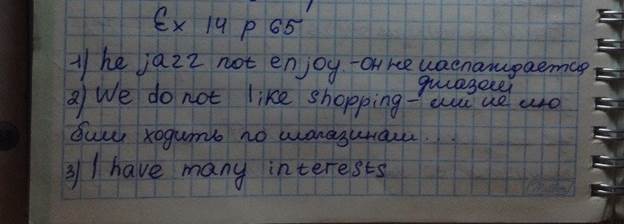 Ex 14 p 65
1) he jazz not enjoy. - он не наслаждается
джазом
2) We do not like shopping - мы не лю
бим ходить по магазинам...
3) I have many interests